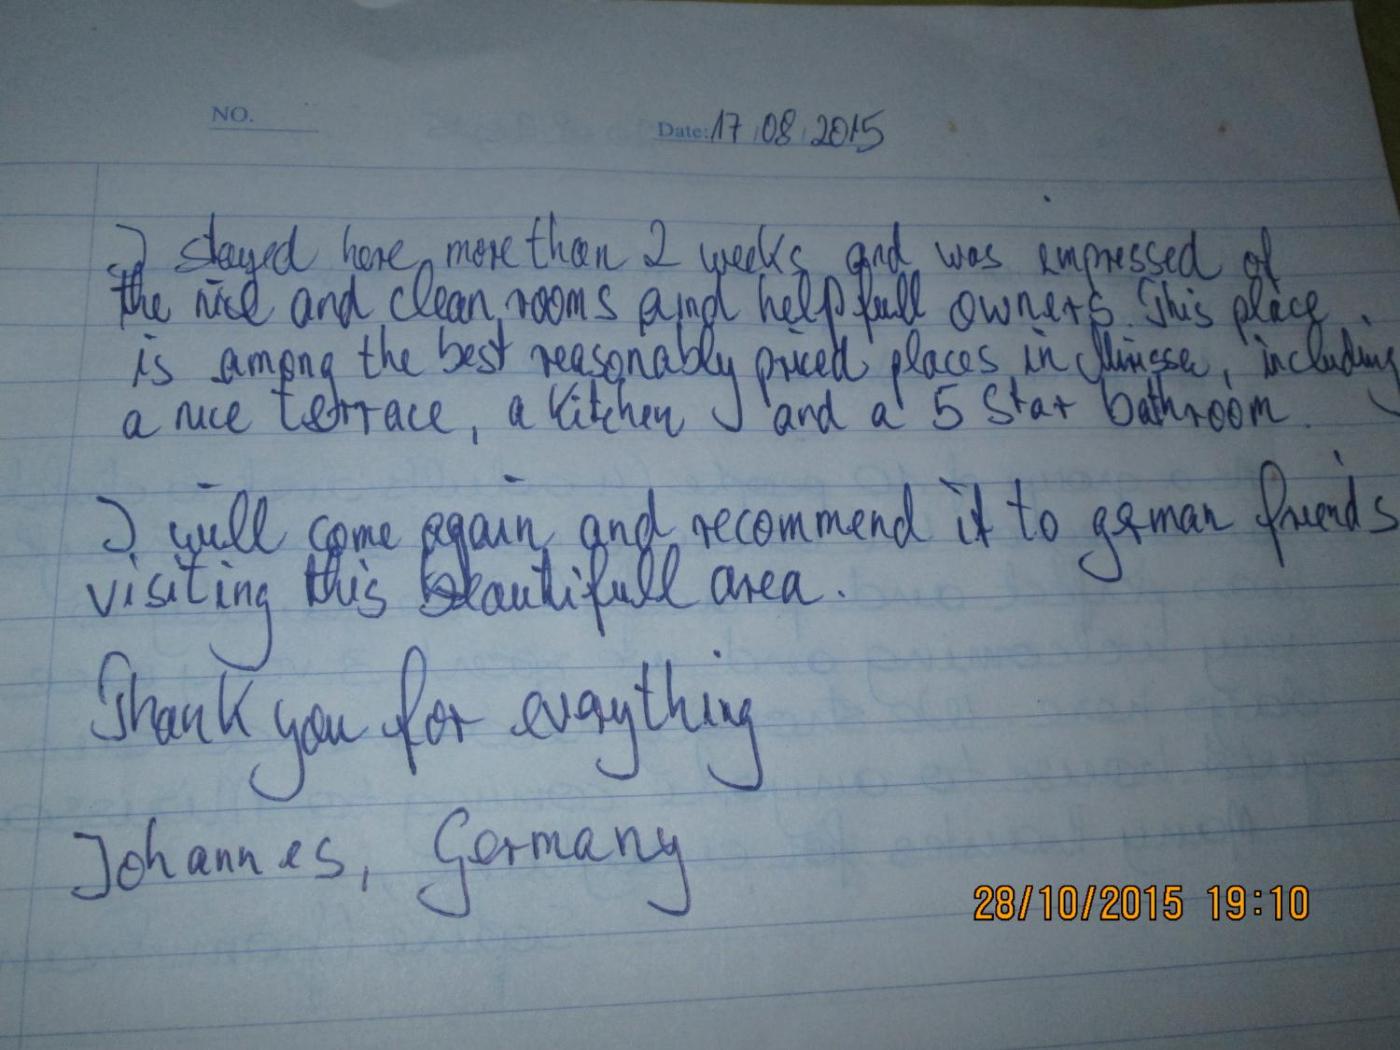 NO.
Date: 17.08.2015
I stayed here more than 2 weeks and was impressed of
the nice and clean rooms and helpfull owners. This place
is among the best reasonably priced places in Mirissa, including
a nice terrace, a kitchen and a 5 Star bathroom.
I will come again and recommend it to german friends
visiting this beautifull area.
Thank you for everything
Johannes, Germany
28/10/2015 19:10